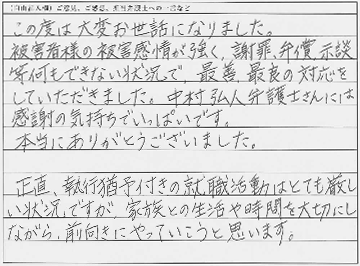 (自由記入欄)ご意見、ご感想、担当弁護士への一言など
この度は大変お世話になりました。
被害者様の被害感情が強く、謝罪、弁償、示談
等何もできない状況で、最善、最良の対応を
していただきました。中村弘人弁護士さんには
感謝の気持ちでいっぱいです。
本当にありがとうございました。
正直、執行猶予付きの就職活動はとても厳し
い状況ですが、家族との生活や時間を大切にし
ながら、前向きにやっていこうと思います。